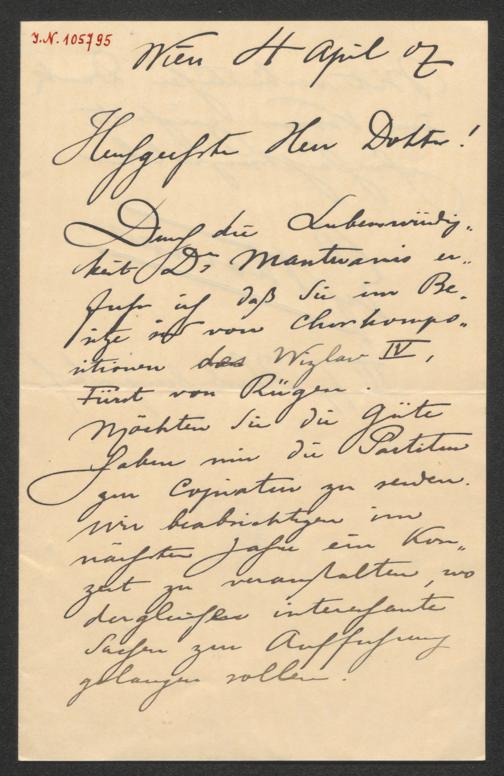 J.N. 105795
Wien 4 April 07
Hochgeehrter Herr Doktor!
Durch die Liebenswürdig-
keit Dr Mantuanis er-
fuhr ich daß Sie im Be-
sitze sind von Chorkompo-
sitionen des Wizlav IV,
Fürst von Rügen.
Möchten Sie die Güte
haben mir die Partituren
zum Copiaten zu senden.
Wir beabsichtigen im
nächsten Jahre ein Kon-
zert zu veranstalten, wo
dergleichen interessante
Sachen zur Aufführung
gelangen sollen.